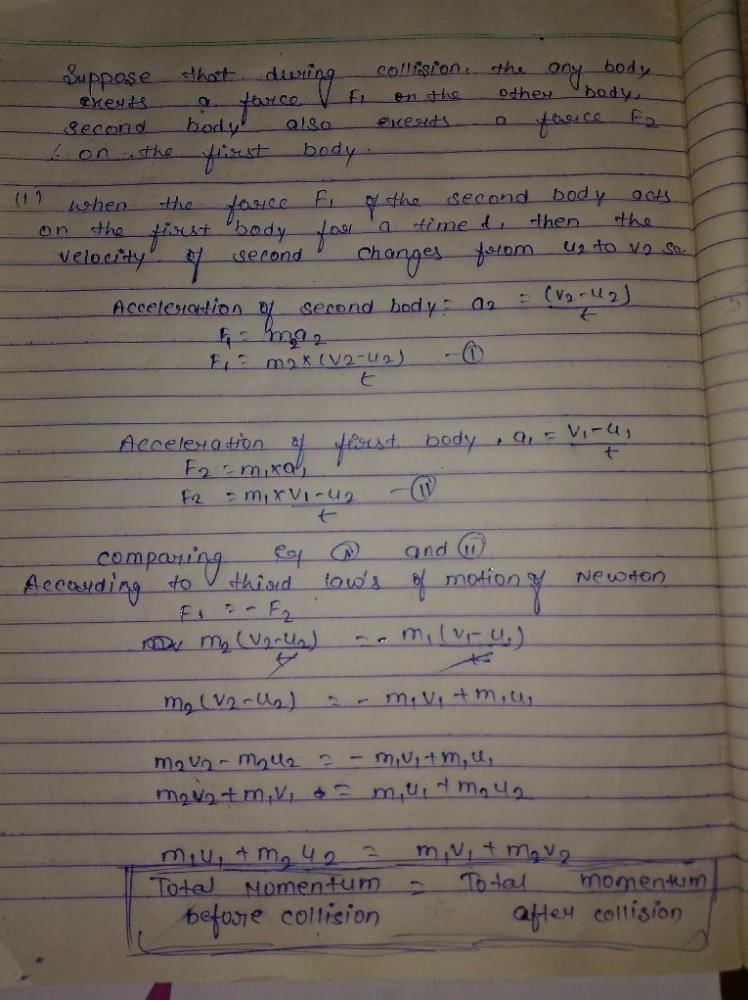 Suppose that during collision, the any body
exerts a farce F₁ on the other body,
second body also exerts a farce F2
∴ on the first body.
(1) when the farce F₁ of the second body acts
on the first body for a time t, then the
velocity of second changes from u2 to v2 so
Acceleration of second body = a2 = (v2-u2)/t
F₁ = m2a2
F₁ = m2x(v2-u2)/t -(i)
Acceleration of first body, a₁ = v₁-u₁/t
F2 = m₁xa₁
F2 = m₁xv₁-u2/t -(ii)
comparing eq (i) and (ii)
According to third law's of motion of Newton
F₁ = - F₂
m₂(v₂-u₂)/t = - m₁(v₁-u₁)/t
m₂(v2-u2) = - m₁v₁ + m₁u₁
m2v2 - m2u2 = - m₁v₁ + m₁u₁
m2v2 + m₁v₁ = m₁u₁ + m2u2
m₁u₁ + m2u2 = m₁v₁ + m2v2
Total Momentum = Total momentum
before collision after collision